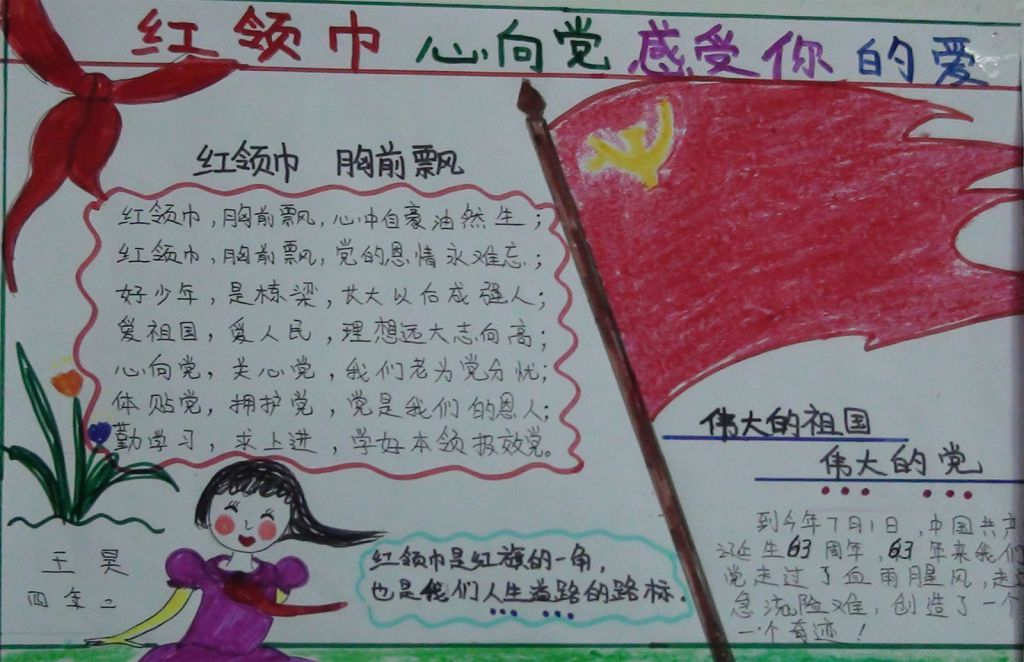 红领巾 心向党 感受你的爱
红领巾 胸前飘
红领巾，胸前飘，心中自豪油然生；
红领巾，胸前飘，党的恩情永难忘；
好少年，是栋梁，长大以后成强人；
爱祖国，爱人民，理想远大志向高；
心向党，关心党，我们老为党分忧；
体贴党，拥护党，党是我们的恩人；
勤学习，求上进，学好本领报效党。
王昊
四年二
红领巾是红旗的一角，
也是我们人生道路的路标．
伟大的祖国
伟大的党
到今年7月1日，中国共产
诞生63周年，63年来我们
党走过了血雨腥风，走过
急流险难，创造了一个
一个奇迹！